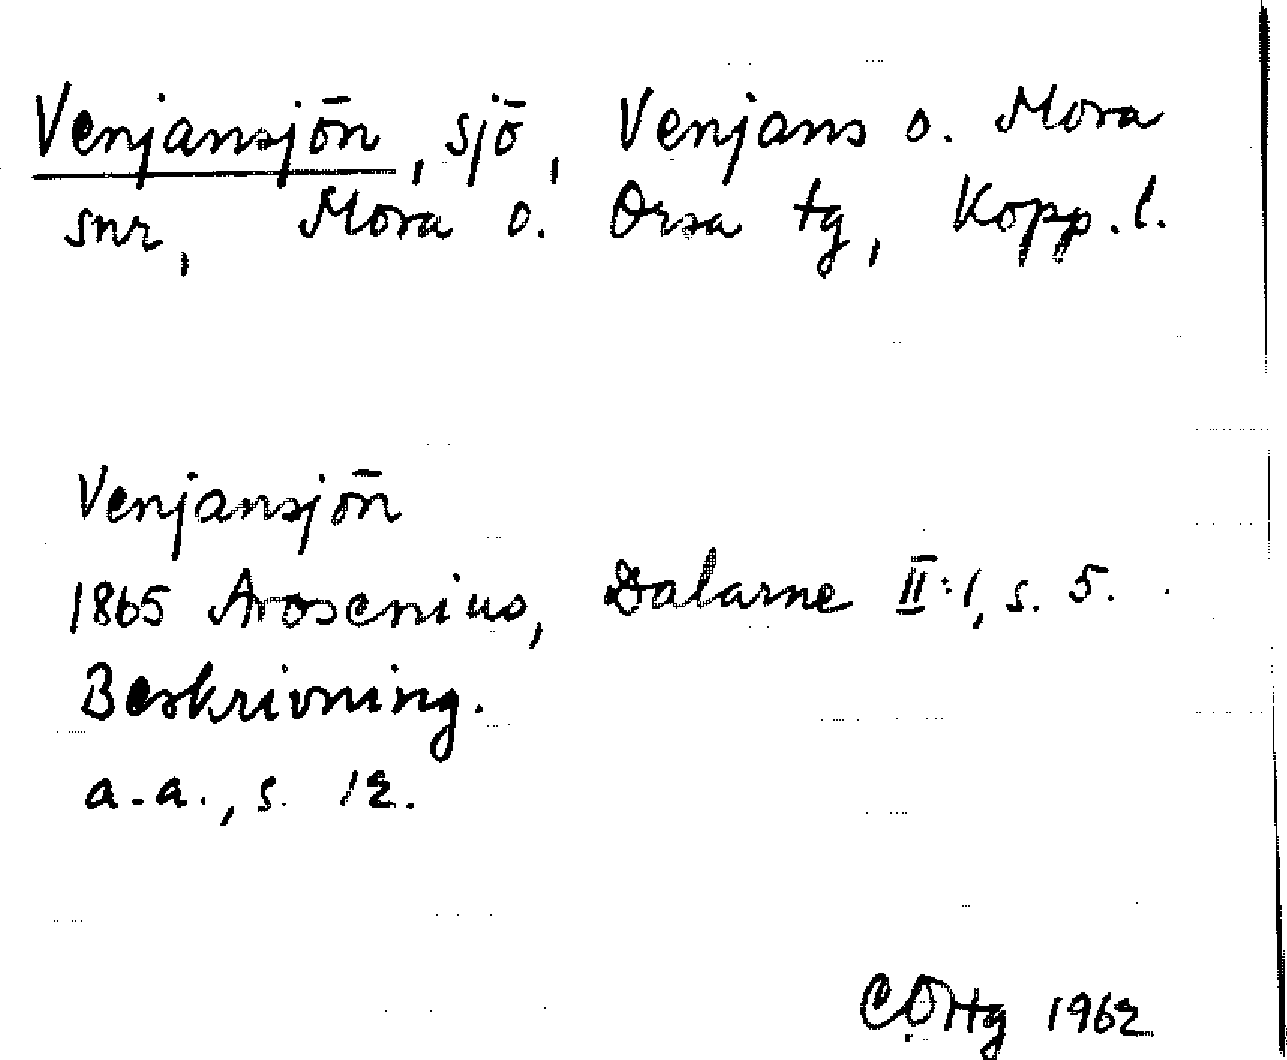 Venjansjön, sjö, Venjans o. Mora
snr, Mora o. Orsa tg, Kopp. l.
Venjansjön
1865 Arosenius, Dalarne II:1, s. 5.
Beskrivning.
a.a., s. 12.
1962